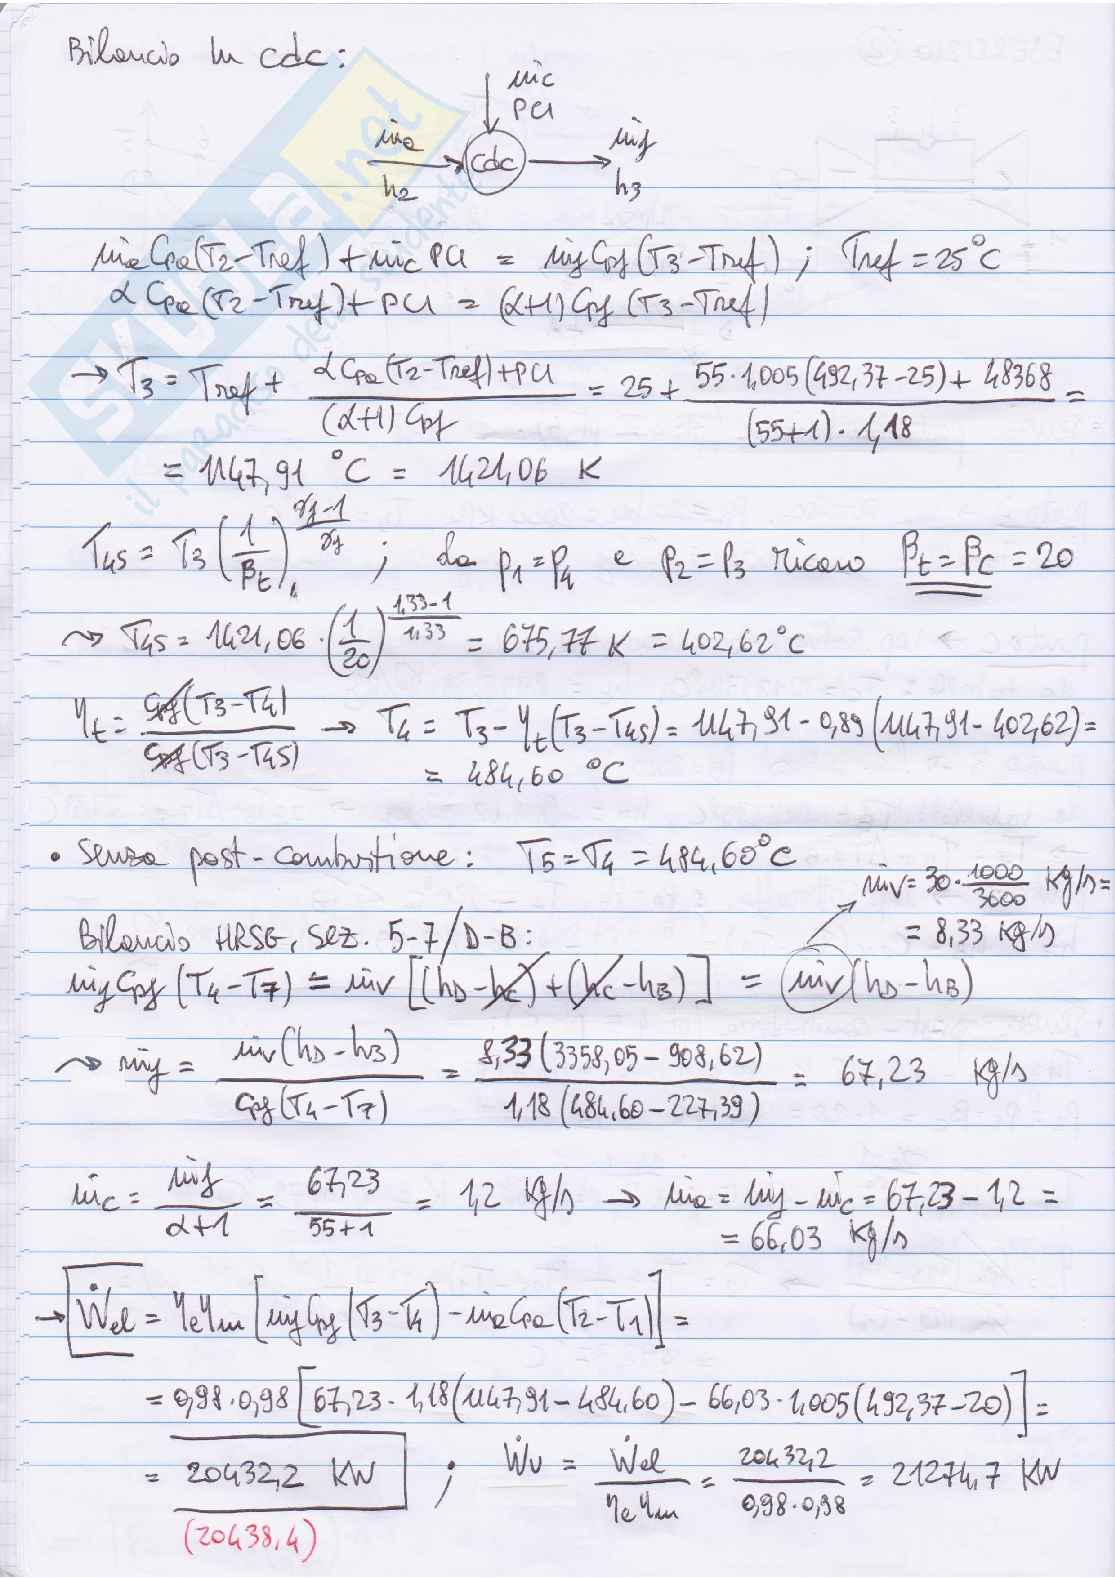 Bilancio in cdc:
ṁc
PCI
ṁa
h2
cdc
ṁf
h3
ṁa Cpa(T2-Tref) + ṁc PCI = ṁf Cpf(T3-Tref) ; Tref = 25°C
α Cpa(T2-Tref) + PCI = (α+1) Cpf (T3-Tref)
→ T3 = Tref + (α Cpa(T2-Tref)+PCI)/((α+1) Cpf) = 25 + (55·1,005(492,37-25) + 48368)/((55+1)·1,18) =
= 1147,91 °C = 1421,06 K
T4s = T3 (1/βt)^((γf-1)/γf) ; da p1=p4 e p2=p3 ricavo βt=βc = 20
⇝ T4s = 1421,06 · (1/20)^((1,33-1)/1,33) = 675,77 K = 402,62°C
ηt = Cpf(T3-T4)/Cpf(T3-T4s) → T4 = T3 - ηt(T3-T4s) = 1147,91 - 0,89 (1147,91 - 402,62) =
= 484,60 °C
• Senza post-combustione: T5 = T4 = 484,60°C
ṁv = 30 · 1000/3600 Kg/s =
= 8,33 Kg/s
Bilancio HRSG, sez. 5-7/D-B:
ṁf Cpf (T4-T7) = ṁv [(hD-hC) + (hC-hB)] = ṁv (hD-hB)
⇝ ṁf = ṁv(hD-hB)/Cpf(T4-T7) = 8,33 (3358,05 - 908,62)/1,18 (484,60 - 227,39) = 67,23 Kg/s
ṁc = ṁf/(α+1) = 67,23/(55+1) = 1,2 Kg/s → ṁa = ṁf - ṁc = 67,23 - 1,2 =
= 66,03 Kg/s
→ Ẇel = ηe ηm [ṁf Cpf (T3-T4) - ṁa Cpa (T2-T1)] =
= 0,98 · 0,98 [67,23 · 1,18 (1147,91 - 484,60) - 66,03 · 1,005 (492,37 - 20)] =
= 20432,2 KW ; Ẇu = Ẇel/(ηe ηm) = 20432,2/(0,98·0,98) = 21274,7 KW
(20438,4)
SKUOLA.net
il paradiso dello studente